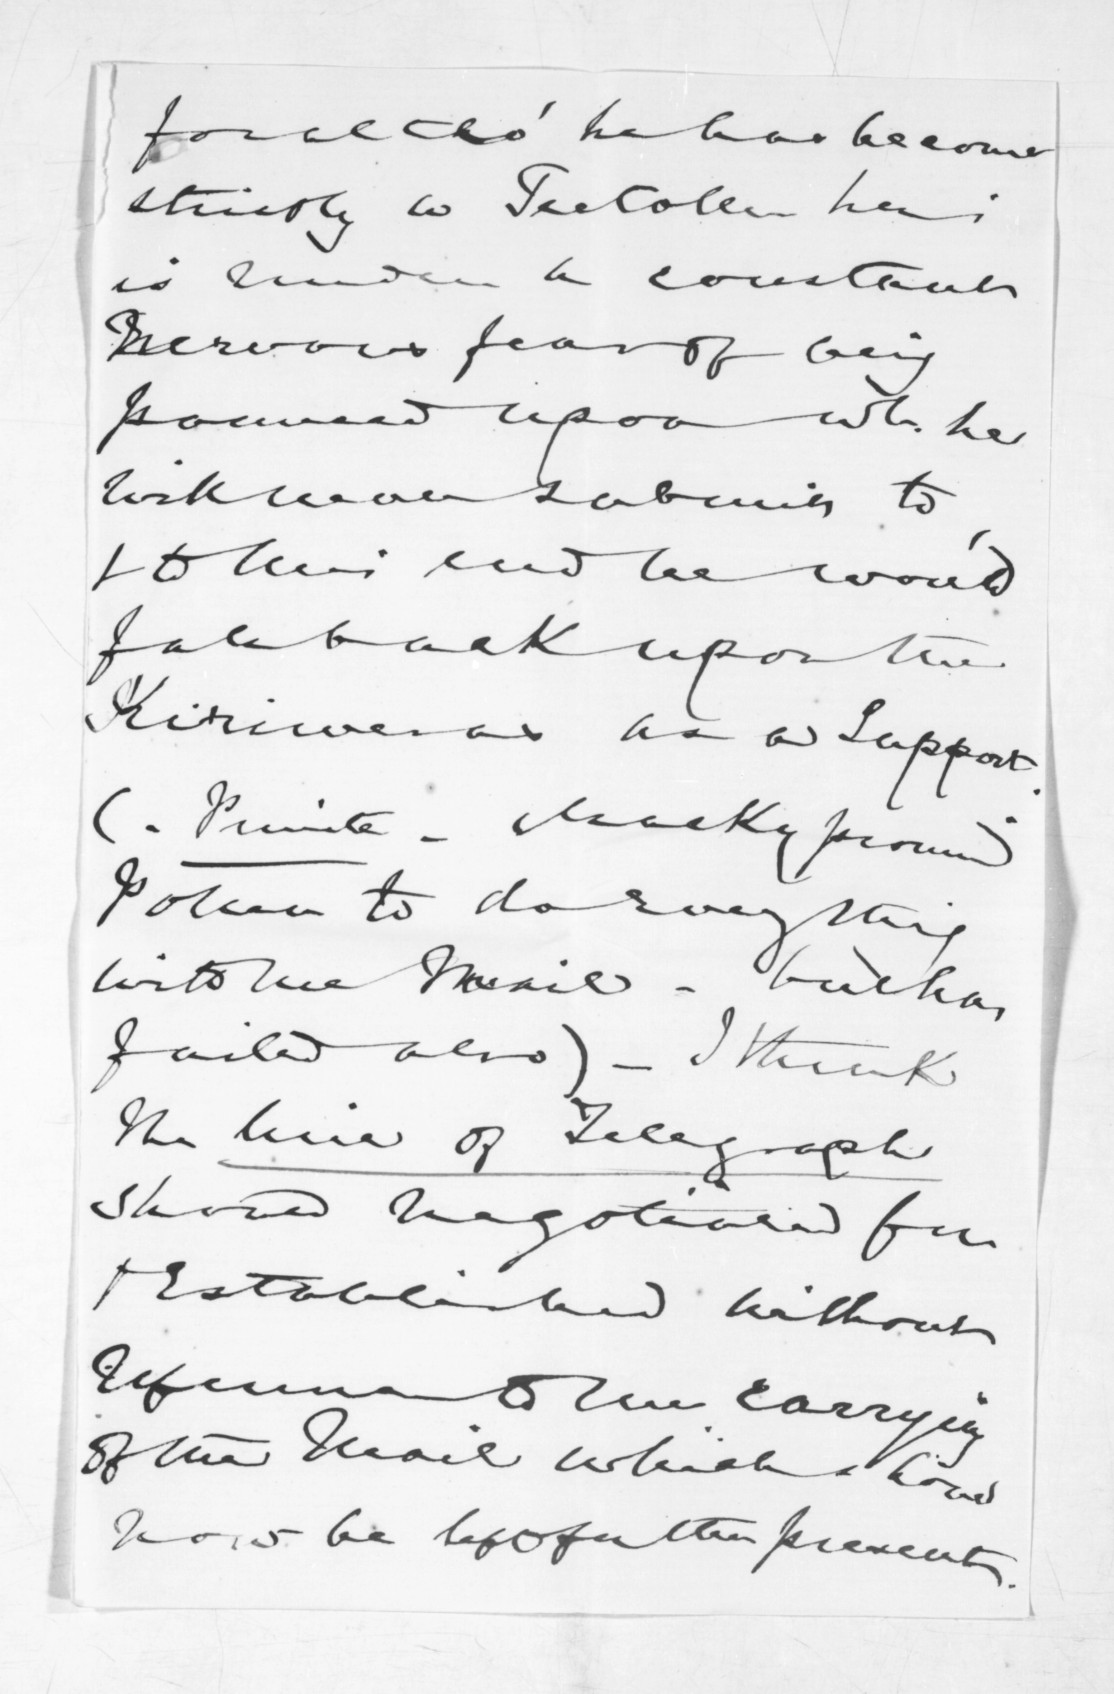 for altho' he has become
strictly a Teetotaller he
is under a constant
Nervous fear of being
pounced upon wh. he
will never submit to,
& to this end he would
fall back upon the
Kiriwera as a Support.
(- Private - Mackay promised
to do everything
with the Mail - but has
failed also) - I think
the line of Telegraph
should negotiated for
& Established without
reference to the carrying
of the Mail which should
now be left for the present.